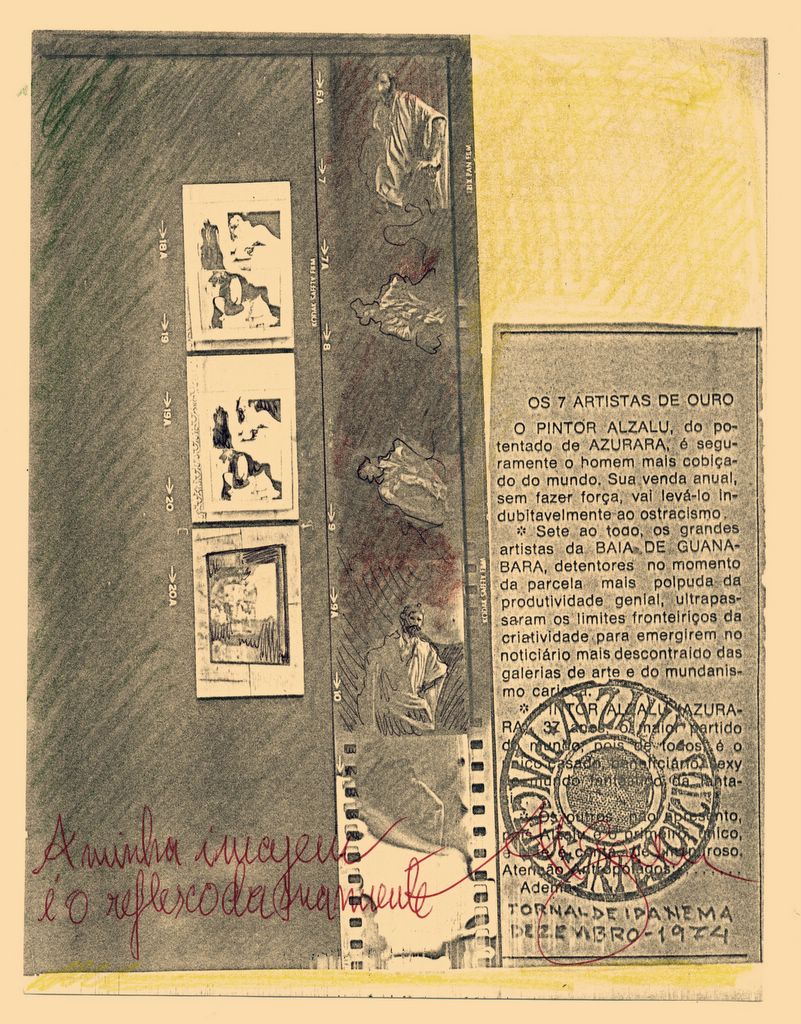 →6A
→7
→7A
→8
→9
→9A
→10
TRI X PAN FILM
KODAK SAFETY FILM
KODAK SAFETY FILM
→18A
→19
→19A
→20
→20A
OS 7 ARTISTAS DE OURO
O PINTOR ALZALU, do po-
tentado de AZURARA, é segu-
ramente o homem mais cobiça-
do do mundo. Sua venda anual,
sem fazer força, vai levá-lo in-
dubitavelmente ao ostracismo.
* Sete ao todo, os grandes
artistas da BAIA DE GUANA-
BARA, detentores no momento
da parcela mais polpuda da
produtividade genial, ultrapas-
saram os limites fronteiriços da
criatividade para emergirem no
noticiário mais descontraido das
galerias de arte e do mundanis-
mo
* INTOR ALZALU AZURA-
RA, 37 anos o maior partido
do mundo, pois de todos é o
casado, beneficiário sexy
mundo fantástico da fanta-
* Os outros não apresento,
Alzalu é o primeiro, único,
Atenção Antropófagos
Adema
ALZALU
ORIGINAL
JORNAL DE IPANEMA
DEZEMBRO-1974
A minha imagem
é o reflexo da sua mente